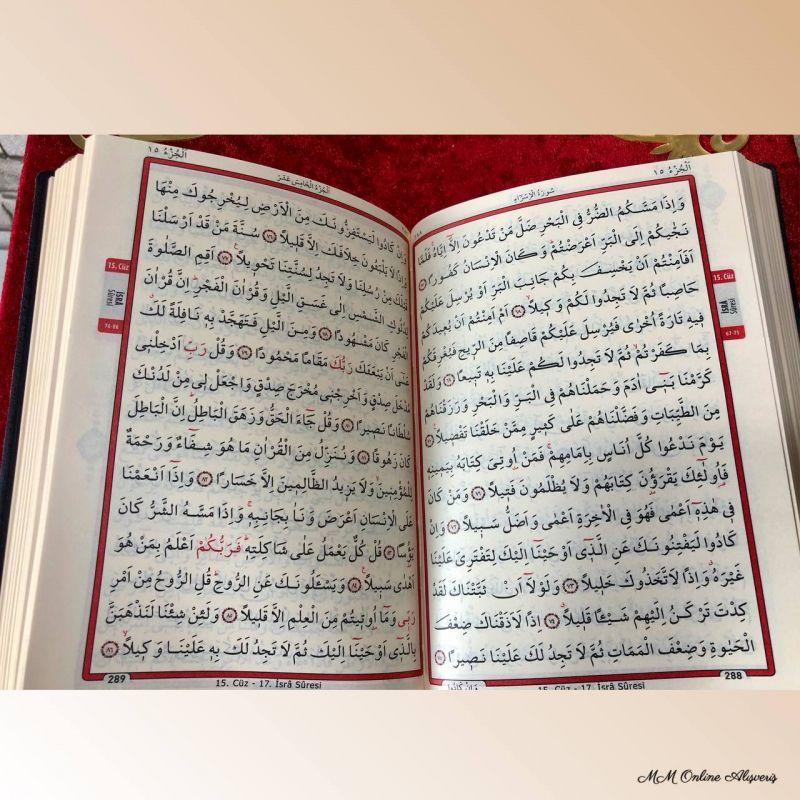 اَلْجُزْءُ ١٥
سُورَةُ الْاِسْرَاءِ
وَاِذَا مَسَّكُمُ الضُّرُّ فِى الْبَحْرِ ضَلَّ مَنْ تَدْعُونَ اِلَّٓا اِيَّاهُۚ فَلَمَّا
نَجّٰيكُمْ اِلَى الْبَرِّ اَعْرَضْتُمْۜ وَكَانَ الْاِنْسَانُ كَفُورًا ﴿٦٧﴾
اَفَاَمِنْتُمْ اَنْ يَخْسِفَ بِكُمْ جَانِبَ الْبَرِّ اَوْ يُرْسِلَ عَلَيْكُمْ
حَاصِبًا ثُمَّ لَا تَجِدُوا لَكُمْ وَكِيلًاۙ ﴿٦٨﴾ اَمْ اَمِنْتُمْ اَنْ يُعِيدَكُمْ
فِيهِ تَارَةً اُخْرٰى فَيُرْسِلَ عَلَيْكُمْ قَاصِفًا مِنَ الرِّيحِ فَيُغْرِقَكُمْ
بِمَا كَفَرْتُمْۙ ثُمَّ لَا تَجِدُوا لَكُمْ عَلَيْنَا بِهٖ تَبِيعًا ﴿٦٩﴾ وَلَقَدْ
كَرَّمْنَا بَنِٓى اٰدَمَ وَحَمَلْنَاهُمْ فِى الْبَرِّ وَالْبَحْرِ وَرَزَقْنَاهُمْ
مِنَ الطَّيِّبَاتِ وَفَضَّلْنَاهُمْ عَلٰى كَثِيرٍ مِمَّنْ خَلَقْنَا تَفْضِيلًا ﴿٧٠﴾
يَوْمَ نَدْعُوا كُلَّ اُنَاسٍ بِاِمَامِهِمْۚ فَمَنْ اُو۫تِىَ كِتَابَهُ بِيَمِينِهٖ
فَاُو۬لٰٓئِكَ يَقْرَؤُ۫نَ كِتَابَهُمْ وَلَا يُظْلَمُونَ فَتِيلًا ﴿٧١﴾ وَمَنْ كَانَ
فِى هٰذِهٖٓ اَعْمٰى فَهُوَ فِى الْاٰخِرَةِ اَعْمٰى وَاَضَلُّ سَبِيلًا ﴿٧٢﴾ وَاِنْ
كَادُوا لَيَفْتِنُونَكَ عَنِ الَّذِٓى اَوْحَيْنَٓا اِلَيْكَ لِتَفْتَرِىَ عَلَيْنَا
غَيْرَهُۗ وَاِذًا لَاتَّخَذُوكَ خَلِيلًا ﴿٧٣﴾ وَلَوْلَٓا اَنْ ثَبَّتْنَاكَ لَقَدْ
كِدْتَ تَرْكَنُ اِلَيْهِمْ شَيْـًٔا قَلِيلًاۗ ﴿٧٤﴾ اِذًا لَاَذَقْنَاكَ ضِعْفَ
الْحَيٰوةِ وَضِعْفَ الْمَمَاتِ ثُمَّ لَا تَجِدُ لَكَ عَلَيْنَا نَصِيرًا ﴿٧٥﴾
15. Cüz
İSRÂ
Sûresi
67-75
وَاِنْ كَادُوا
15. Cüz - 17. İsrâ Sûresi
288
اَلْجُزْءُ ١٥
اَلْجُزْءُ الْخَامِسَ عَشَرَ
وَاِنْ كَادُوا لَيَسْتَفِزُّونَكَ مِنَ الْاَرْضِ لِيُخْرِجُوكَ مِنْهَا
وَاِذًا لَا يَلْبَثُونَ خِلَافَكَ اِلَّا قَلِيلًا ﴿٧٦﴾ سُنَّةَ مَنْ قَدْ اَرْسَلْنَا
قَبْلَكَ مِنْ رُسُلِنَا وَلَا تَجِدُ لِسُنَّتِنَا تَحْوِيلًا۟ ﴿٧٧﴾ اَقِمِ الصَّلٰوةَ
لِدُلُوكِ الشَّمْسِ اِلٰى غَسَقِ الَّيْلِ وَقُرْاٰنَ الْفَجْرِۜ اِنَّ قُرْاٰنَ
الْفَجْرِ كَانَ مَشْهُودًا ﴿٧٨﴾ وَمِنَ الَّيْلِ فَتَهَجَّدْ بِهٖ نَافِلَةً لَكَۗ
عَسٰٓى اَنْ يَبْعَثَكَ رَبُّكَ مَقَامًا مَحْمُودًا ﴿٧٩﴾ وَقُلْ رَبِّ اَدْخِلْنِى
مُدْخَلَ صِدْقٍ وَاَخْرِجْنِى مُخْرَجَ صِدْقٍ وَاجْعَلْ لِى مِنْ لَدُنْكَ
سُلْطَانًا نَصِيرًا ﴿٨٠﴾ وَقُلْ جَٓاءَ الْحَقُّ وَزَهَقَ الْبَاطِلُۜ اِنَّ الْبَاطِلَ
كَانَ زَهُوقًا ﴿٨١﴾ وَنُنَزِّلُ مِنَ الْقُرْاٰنِ مَا هُوَ شِفَٓاءٌ وَرَحْمَةٌ
لِلْمُؤْمِنِينَۙ وَلَا يَزِيدُ الظَّالِمِينَ اِلَّا خَسَارًا ﴿٨٢﴾ وَاِذَٓا اَنْعَمْنَا
عَلَى الْاِنْسَانِ اَعْرَضَ وَنَاٰ بِجَانِبِهٖۚ وَاِذَا مَسَّهُ الشَّرُّ كَانَ
يَؤُ۫سًا ﴿٨٣﴾ قُلْ كُلٌّ يَعْمَلُ عَلٰى شَاكِلَتِهٖۜ فَرَبُّكُمْ اَعْلَمُ بِمَنْ هُوَ
اَهْدٰى سَبِيلًا۟ ﴿٨٤﴾ وَيَسْـَٔلُونَكَ عَنِ الرُّوحِۜ قُلِ الرُّوحُ مِنْ اَمْرِ
رَبِّى وَمَٓا اُو۫تِيتُمْ مِنَ الْعِلْمِ اِلَّا قَلِيلًا ﴿٨٥﴾ وَلَئِنْ شِئْنَا لَنَذْهَبَنَّ
بِالَّذِٓى اَوْحَيْنَٓا اِلَيْكَ ثُمَّ لَا تَجِدُ لَكَ بِهٖ عَلَيْنَا وَكِيلًاۙ ﴿٨٦﴾
15. Cüz
İSRÂ
Sûresi
76-86
289
15. Cüz - 17. İsrâ Sûresi
MM Online Alışveriş